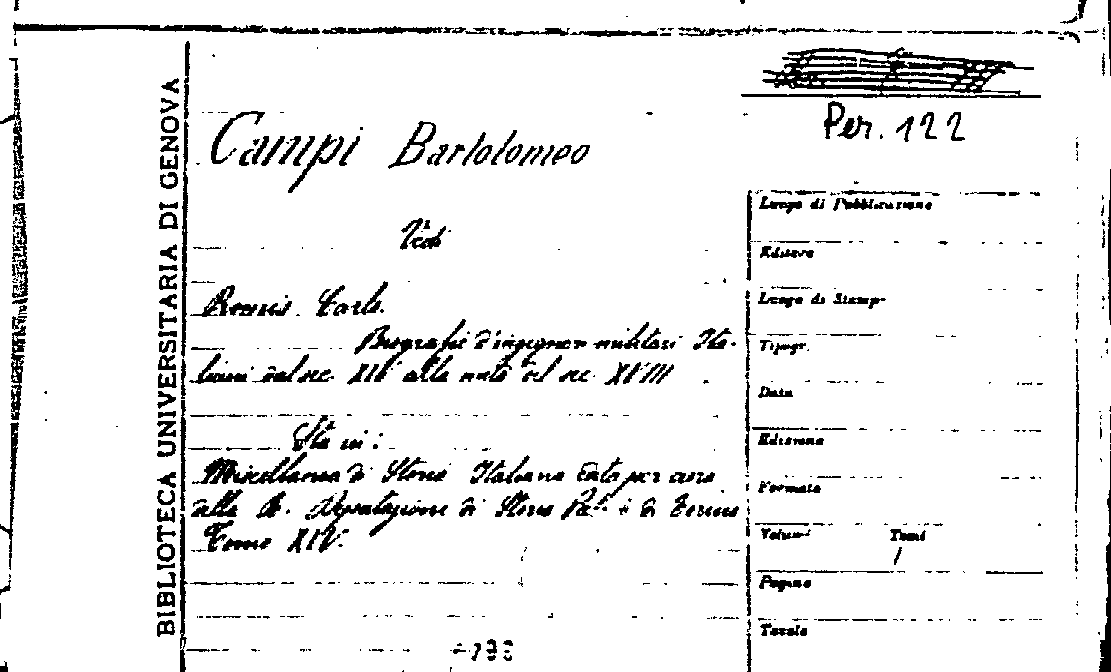 BIBLIOTECA UNIVERSITARIA DI GENOVA
Per. 122
Campi Bartolomeo
Vedi
Promis Carlo.
Biografie d'ingegneri militari Ita-
liani dal sec. XIV alla metà del sec. XVIII
Sta in:
Miscellanea di Storia Italiana edita per cura
della R. Deputazione di Storia Pat. di Torino
Tomo XIV.
Luogo di Pubblicazione
Editore
Luogo di Stamp.
Tipogr.
Data
Edizione
Formato
Volumi Tomi
1
Pagine
Tavole